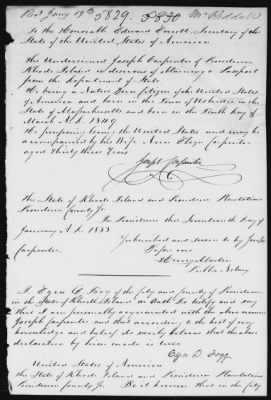 Recd Jany 19th 5829. 5830
To the Honorable Edward Everett Secretary of the
State of the United States of America
The Undersigned Joseph Carpenter of Providence
Rhode Island is desirous of obtaining a Passport
from the Department of State
He being a Native born citizen of the United States
of America and born in the Town of Uxbridge in the
State of Massachusetts and born on the Tenth day of
March A.D.
He proposing leaving the United States and may be
accompanied by his Wife Ann Carpenter
aged thirty three Years
Joseph Carpenter
The State of Rhode Island and Providence Plantations
Providence County Sc.
In Providence this Seventeenth day of
January A.D. 1853
Subscribed and sworn to by Joseph
Carpenter. Before me
Henry Martin
Public Notary
I, Ezra D. Fogg of the city and county of Providence
in the State of Rhode Island on Oath do testify and say
that I am personally acquainted with the above named
Joseph Carpenter and that according to the best of my
knowledge and belief do verily believe that the above
declaration by him made is true
Ezra D. Fogg
United States of America
The State of Rhode Island and Providence Plantations
Providence County Sc. Be it known that on the